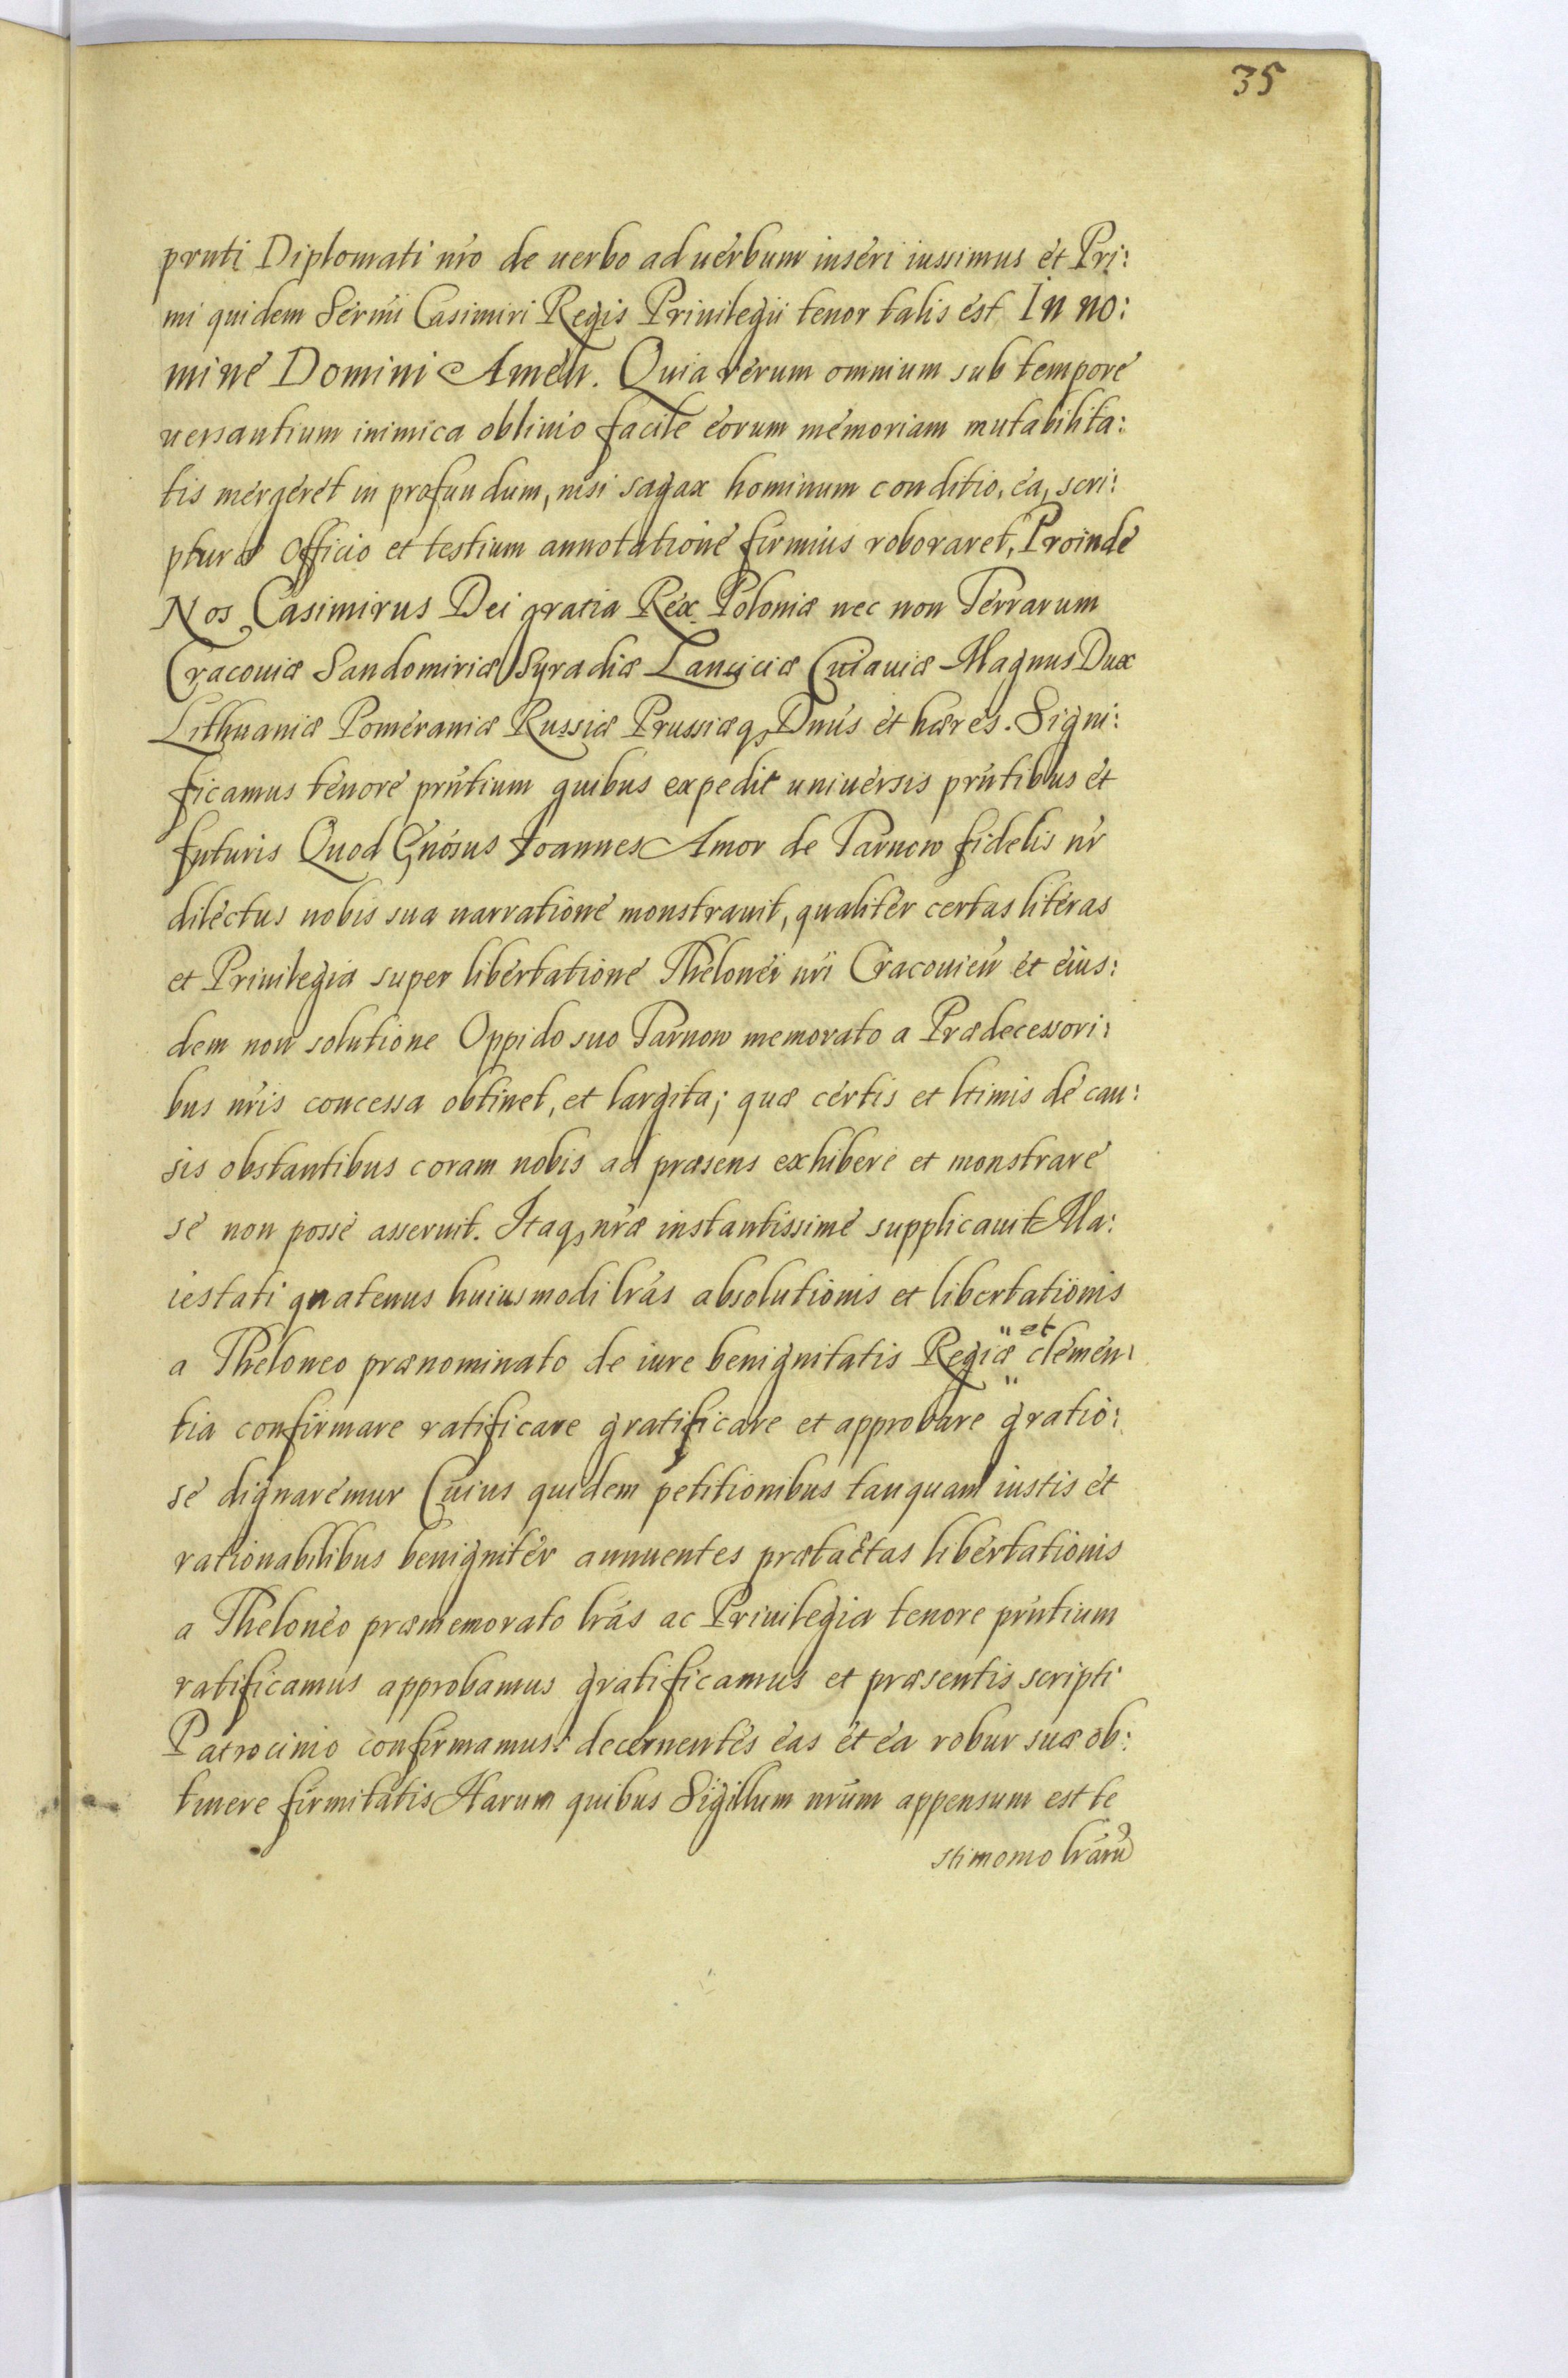 35
prnti Diplomati nro de uerbo ad uerbum inseri iussimus et Pri:
mi quidem Sermi Casimiri Regis Priuilegii tenor talis est In no:
mine Domini Amen. Quia rerum omnium sub tempore
uersantium inimica obliuio facile eorum memoriam mutabilita:
tis mergeret in profundum, nisi sagax hominum conditio, ea, scri:
pturæ Officio et testium annotatione firmius roboraret, Proinde
Nos Casimirus Dei gratia Rex Poloniæ nec non Terrarum
Cracouiæ Sandomiriæ Syradiæ Lanciciæ Cuiauiæ Magnus Dux
Lithuaniæ Pomeraniæ Russiæ Prussiæq, Dnus et hæres. Signi:
ficamus tenore prntium quibus expedit uniuersis prntibus et
futuris Quod Gnosus Joannes Amor de Tarnow fidelis nr
dilectus nobis sua narratione monstrauit, qualiter certas literas
et Priuilegia super libertatione Thelonei nri Cracouien et eius:
dem non solutione Oppido suo Tarnow memorato a Prædecessori:
bus nris concessa obtinet, et largita; quæ certis et ltimis de cau:
sis obstantibus coram nobis ad præsens exhibere et monstrare
se non posse asseruit. Itaq, nræ instantissime supplicauit Ma:
iestati quatenus huiusmodi lras absolutionis et libertationis
a Theloneo prænominato de iure benignitatis Regiæ " et clemen:
tia confirmare ratificare gratificare et approbare gratio:
se dignaremur Cuius quidem petitionibus tanquam iustis et
rationabilibus benigniter annuentes prætactas libertationis
a Theloneo præmemorato lras ac Priuilegia tenore prntium
ratificamus approbamus gratificamus et præsentis scripti
Patrocinio confirmamus: decernentes eas et ea robur suæ ob:
tinere firmitatis Harum quibus Sigillum nrum appensum est te
stimonio lraru